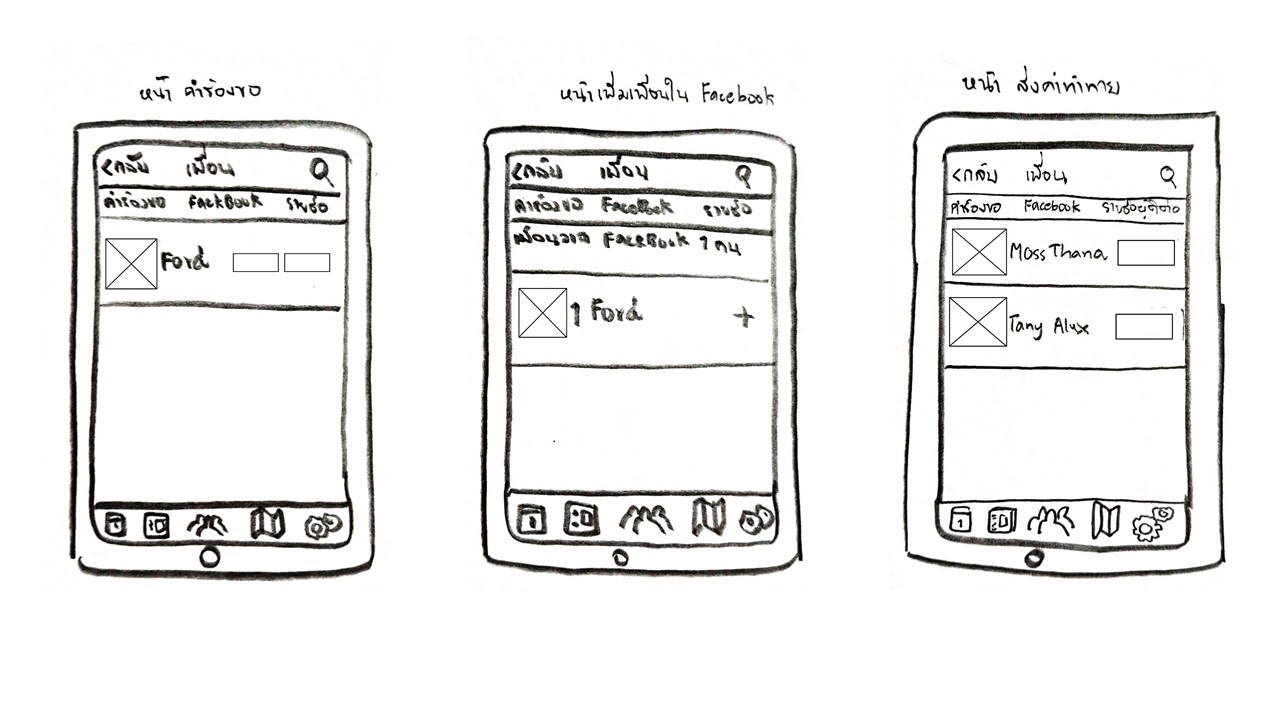 หน้า คำร้องขอ
<กลับ เพื่อน
คำร้องขอ FackBook รายชื่อ
Ford
หน้าเพิ่มเพื่อนใน Facebook
<กลับ เพื่อน
คำร้องขอ FaceBook รายชื่อ
เพื่อนจาก FaceBook 1 คน
1 Ford +
1
หน้า ส่งคำท้าทาย
<กลับ เพื่อน
คำร้องขอ Facebook รายชื่อผู้ติดต่อ
Moss Thana
Tany Alux
1